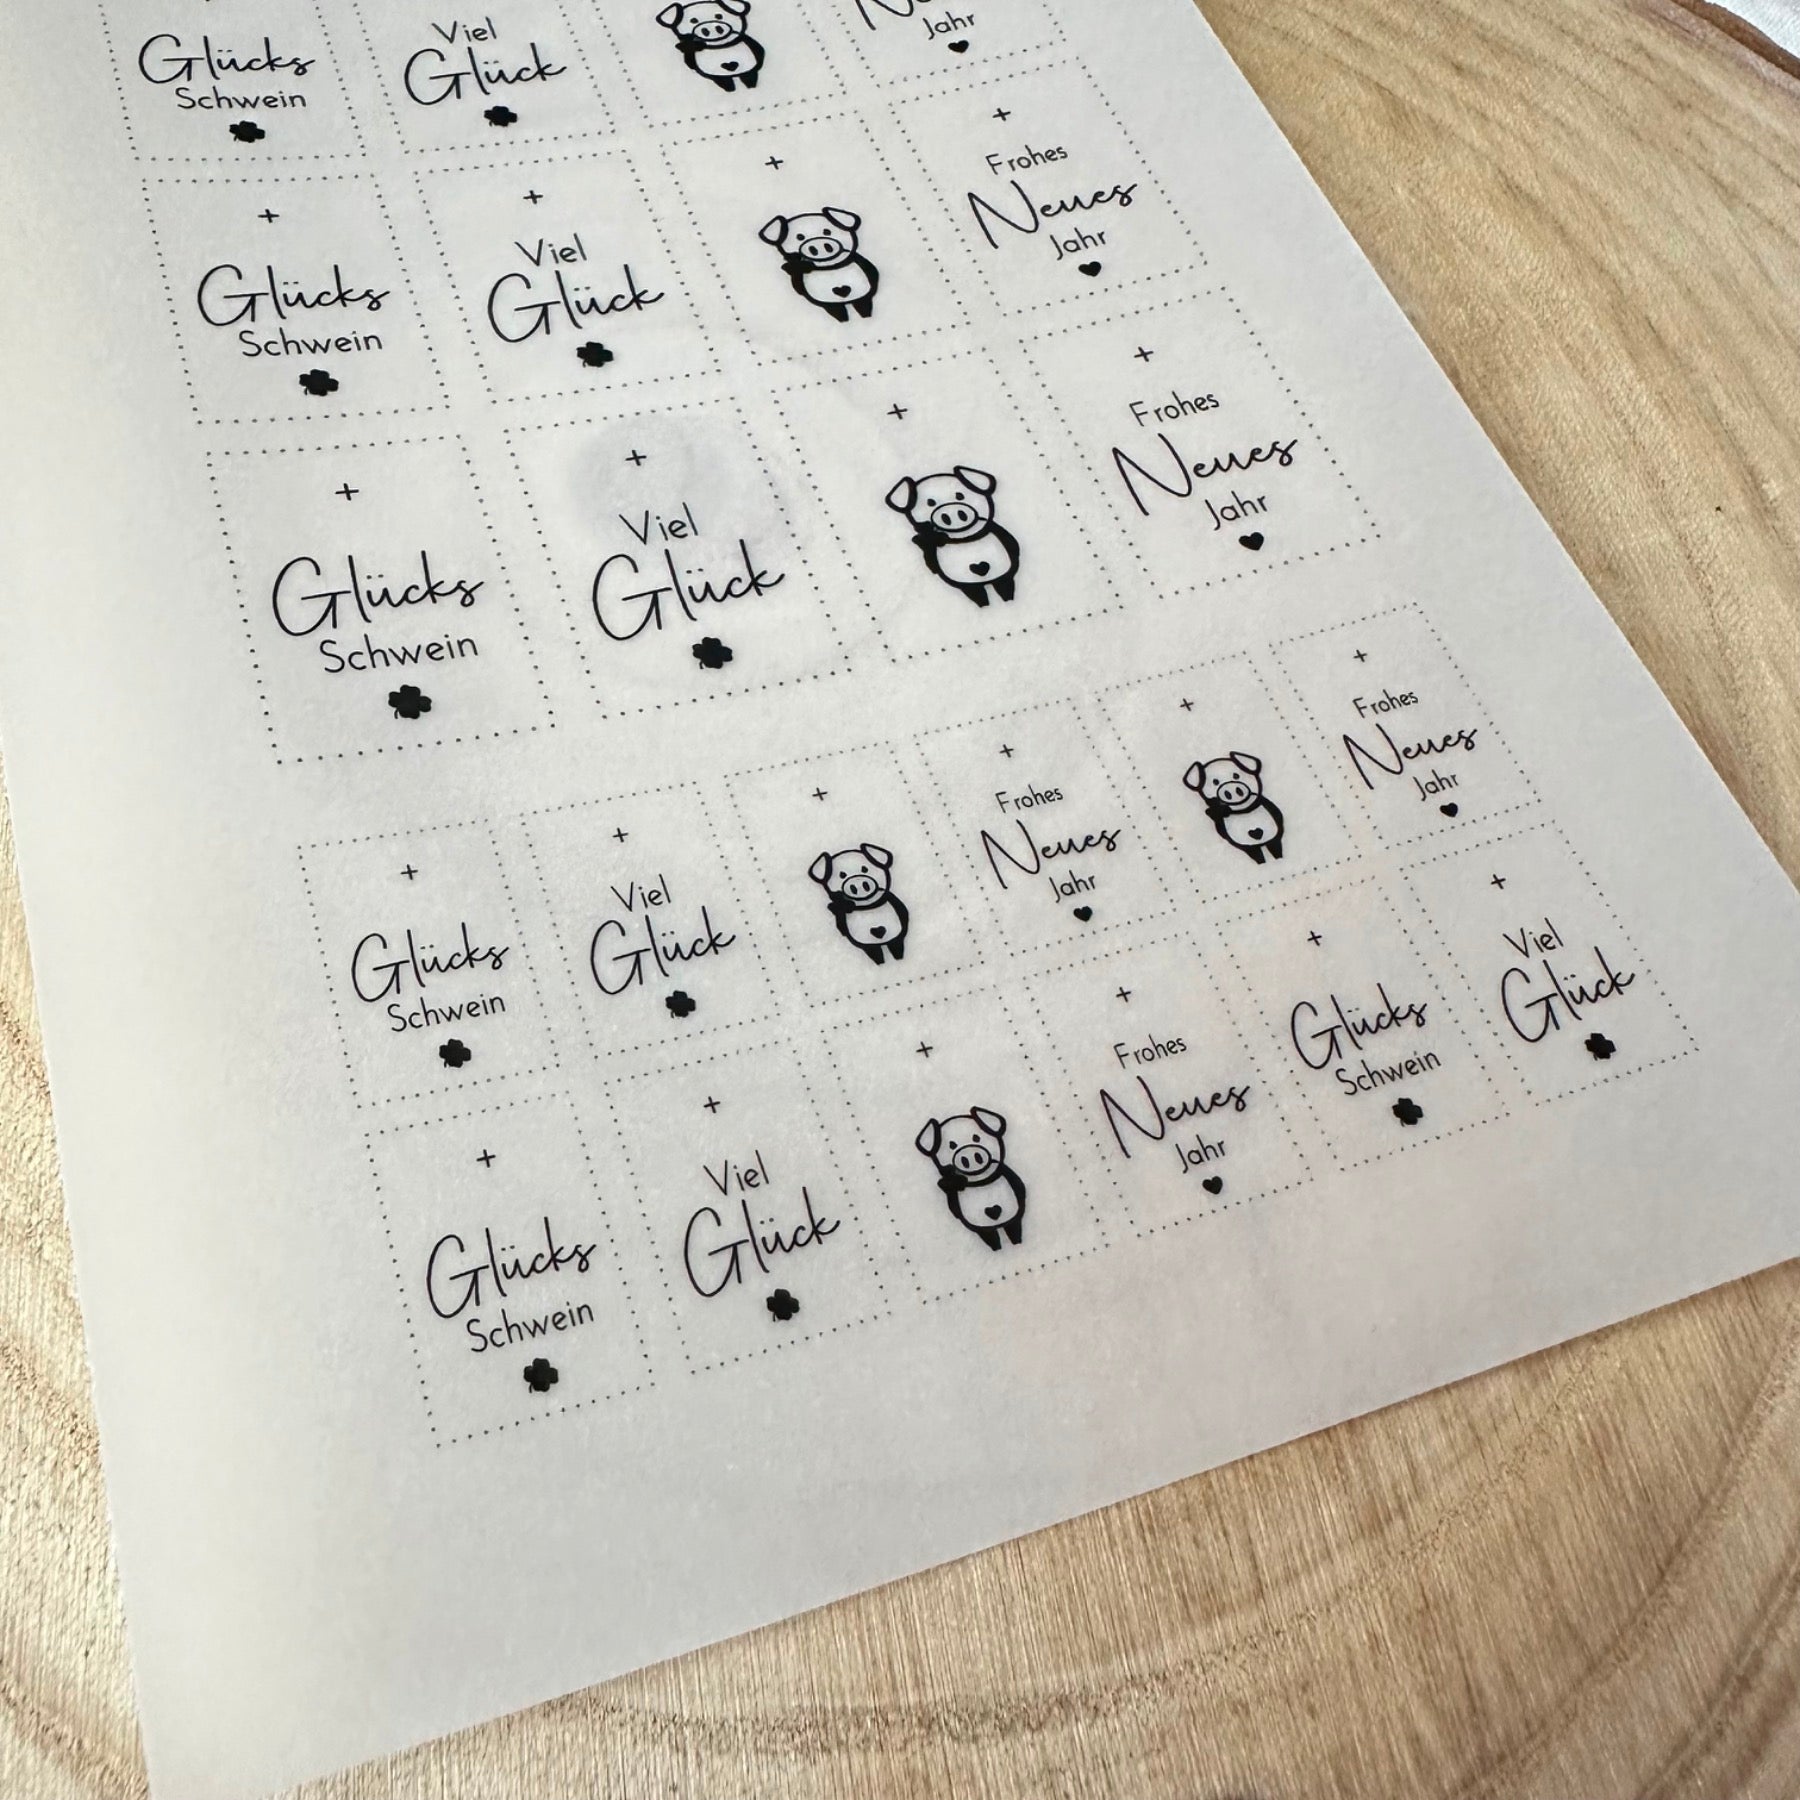 Glücks
Schwein
Viel
Glück
Jahr
Glücks
Schwein
Viel
Glück
Frohes
Neues
Jahr
Glücks
Schwein
Viel
Glück
Frohes
Neues
Jahr
Glücks
Schwein
Viel
Glück
Frohes
Neues
Jahr
Frohes
Neues
Jahr
Glücks
Schwein
Viel
Glück
Frohes
Neues
Jahr
Glücks
Schwein
Viel
Glück